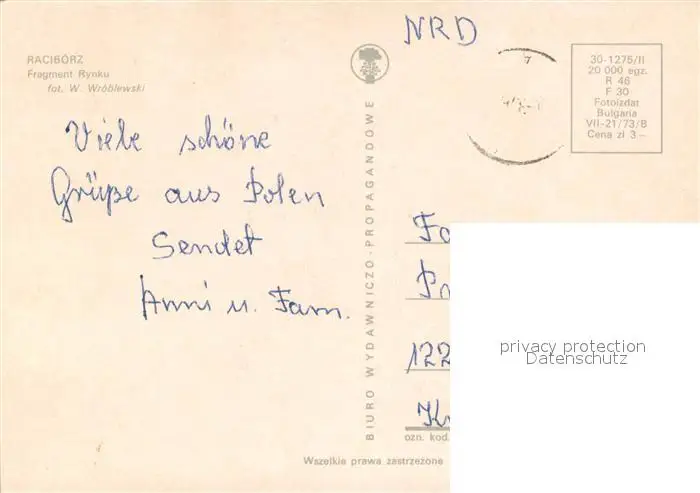 NRD
RACIBÓRZ
Fragment Rynku
fot. W. Wróblewski
30-1275/II
20 000 egz.
R 46
F 30
Fotoizdat
Bulgaria
VII-21/73/B
Cena zł 3—
Viele schöne
Grüße aus Polen
Sendet
Anni u. Fam.
BIURO WYDAWNICZO-PROPAGANDOWE
Fa
122
privacy protection
Datenschutz
ozn. kod.
Wszelkie prawa zastrzeżone